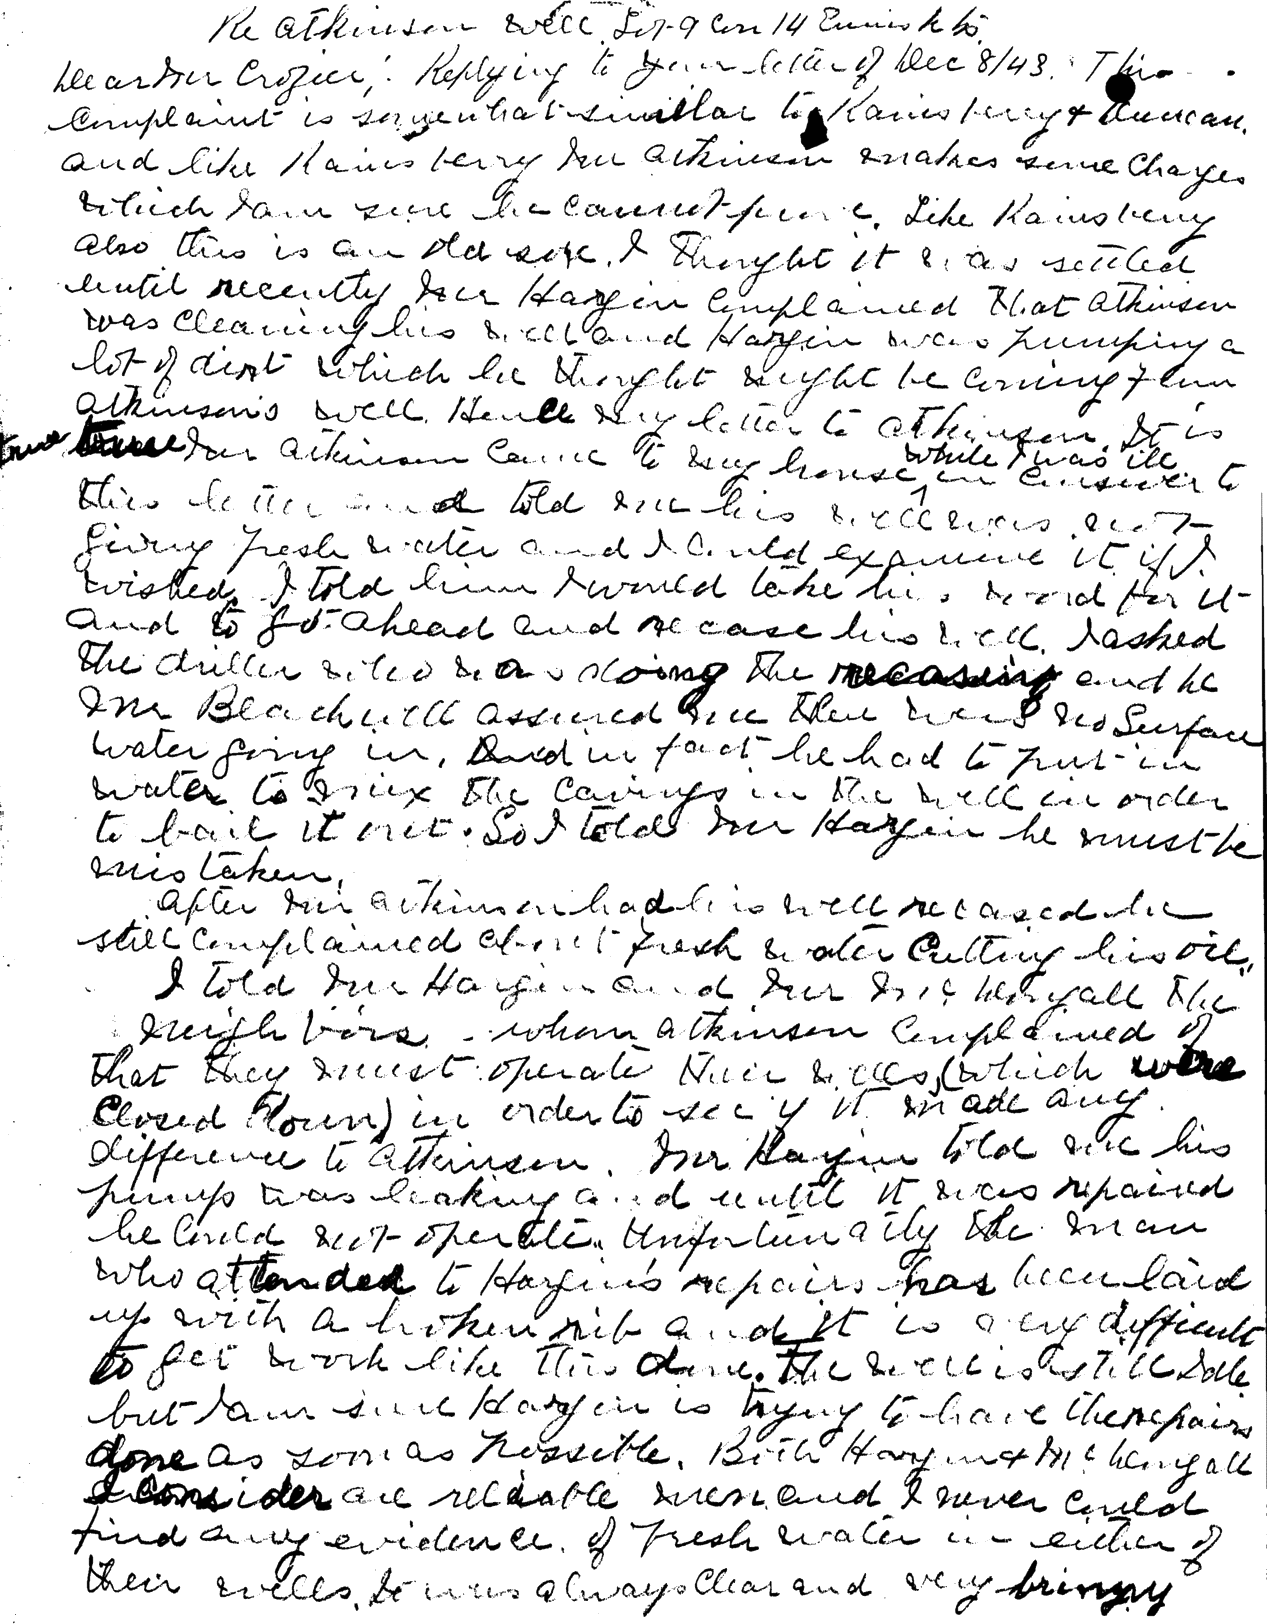 Re Atkinson well Lot 9 Con 14 Enniskn
Dear Mr Crozier,: Replying to your letter of Dec 8/43. This
Complaint is somewhat similar to Kainsberry & Duncan.
and like Kainsberry Mr Atkinson makes some Charges
which I am sure he cannot prove. Like Kainsberry
also this is an old sore. I thought it was settled
until recently Mr Hargin Complained that Atkinson
was cleaning his well and Hargin was pumping a
lot of dirt which he thought might be coming from
Atkinson's well. Hence my letter to Atkinson. It is
true Mr Atkinson came to my house while I was ill in answer to
this letter and told me his well was not
giving fresh water and I could examine it if I
wished. I told him I would take his word for it
and to go ahead and recase his well. I asked
the driller who was doing the recasing and he
Mr Blackwell assured me there was no Surface
water going in. And in fact he had to put in
water to mix the cavings in the well in order
to bail it out. So I told Mr Hargin he must be
mistaken.
After Mr Atkinson had his well recased he
still complained about fresh water Cutting his oil.
I told Mr Hargin and Mr the
neighbors whom Atkinson Complained of
that they must operate their wells, (which were
Closed Down) in order to see if it made any
difference to Atkinson. Mr Hargin told me his
pump was leaking and until it was repaired
he could not operate. Unfortunatly the man
who attended to Hargin's repairs has been laid
up with a broken rib and it is very difficult
to get work like this done. The well is still Idle
but I am sure Hargin is trying to have the repairs
done as soon as possible. Both Hargin &
I consider are reliable men and I never could
find any evidence of fresh water in either of
their wells. It was always Clear and very brinny